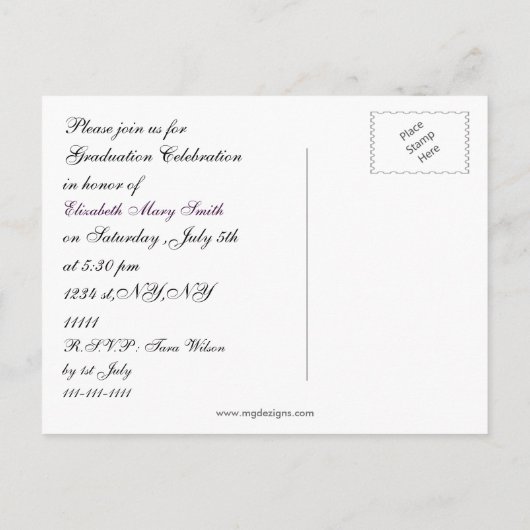 Please join us for
Graduation Celebration
in honor of
Elizabeth Mary Smith
on Saturday ,July 5th
at 5:30 pm
1234 st,NY,NY
11111
R.S.V.P: Tara Wilson
by 1st July
111-111-1111
Place
Stamp
Here
www.mgdezigns.com